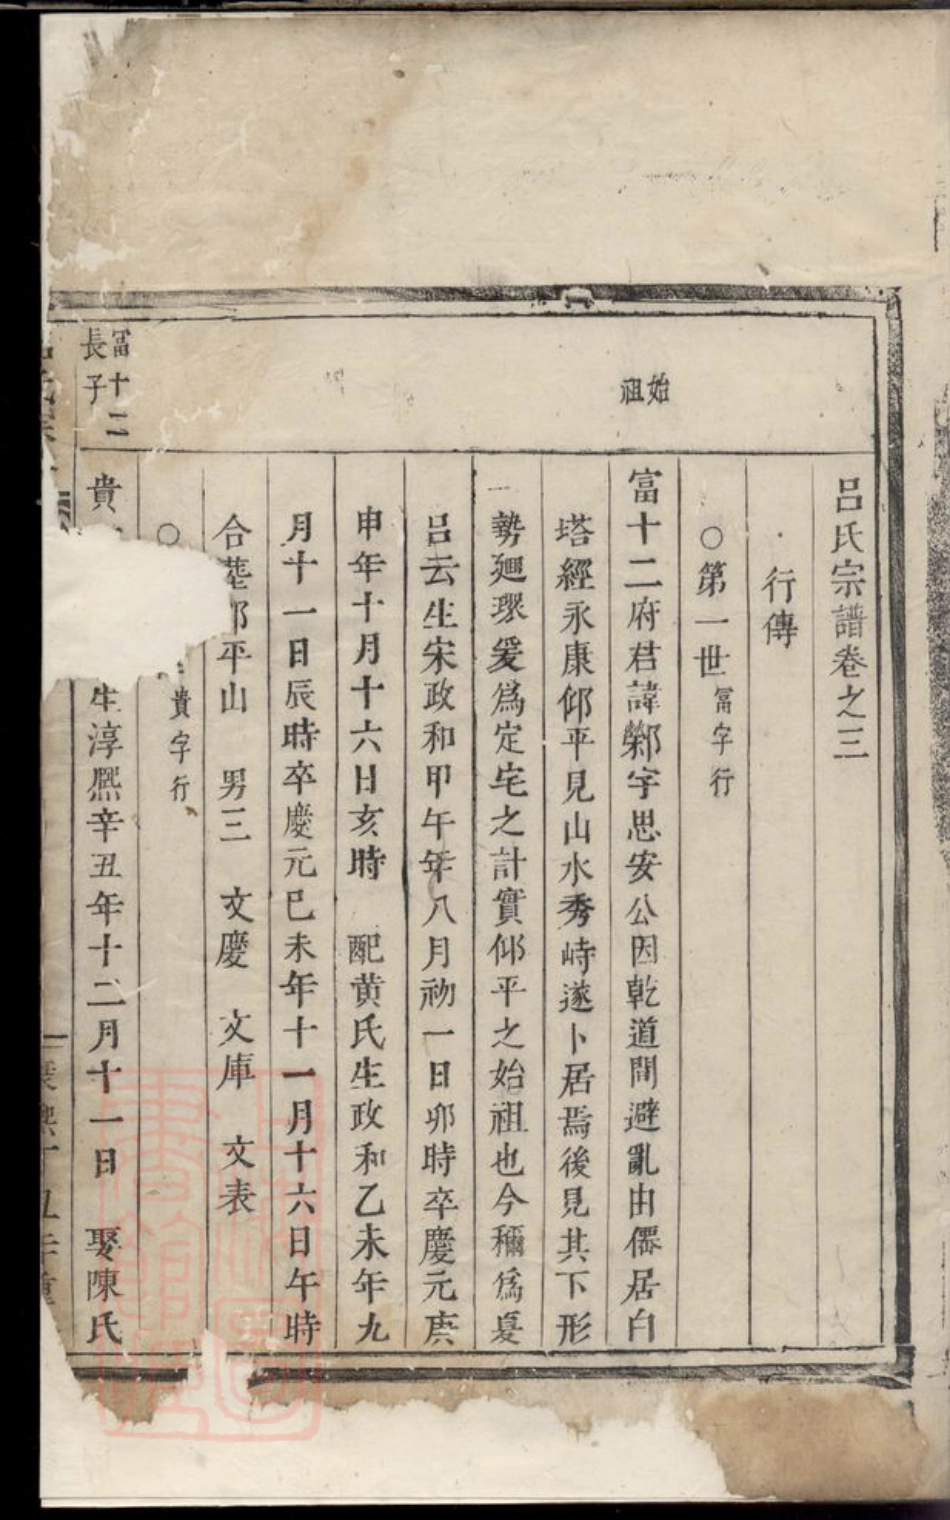 呂氏宗譜卷之三
行傳
○第一世 富字行
始祖
富十二府君諱鄴字思安公因乾道間避亂由儒居白
塔經永康仰平見山水秀峙遂卜居焉後見其下形
勢廻環爰爲定宅之計實仰平之始祖也今稱爲夏
呂云生宋政和甲午年八月初一日卯時卒慶元庚
申年十月十六日亥時 配黄氏生政和乙未年九
月十一日辰時卒慶元己未年十一月十六日午時
合塟 平山 男三 文慶 文庫 文表
○ 貴字行
富十二
長子
貴 生淳熈辛丑年十二月十一日 娶陳氏